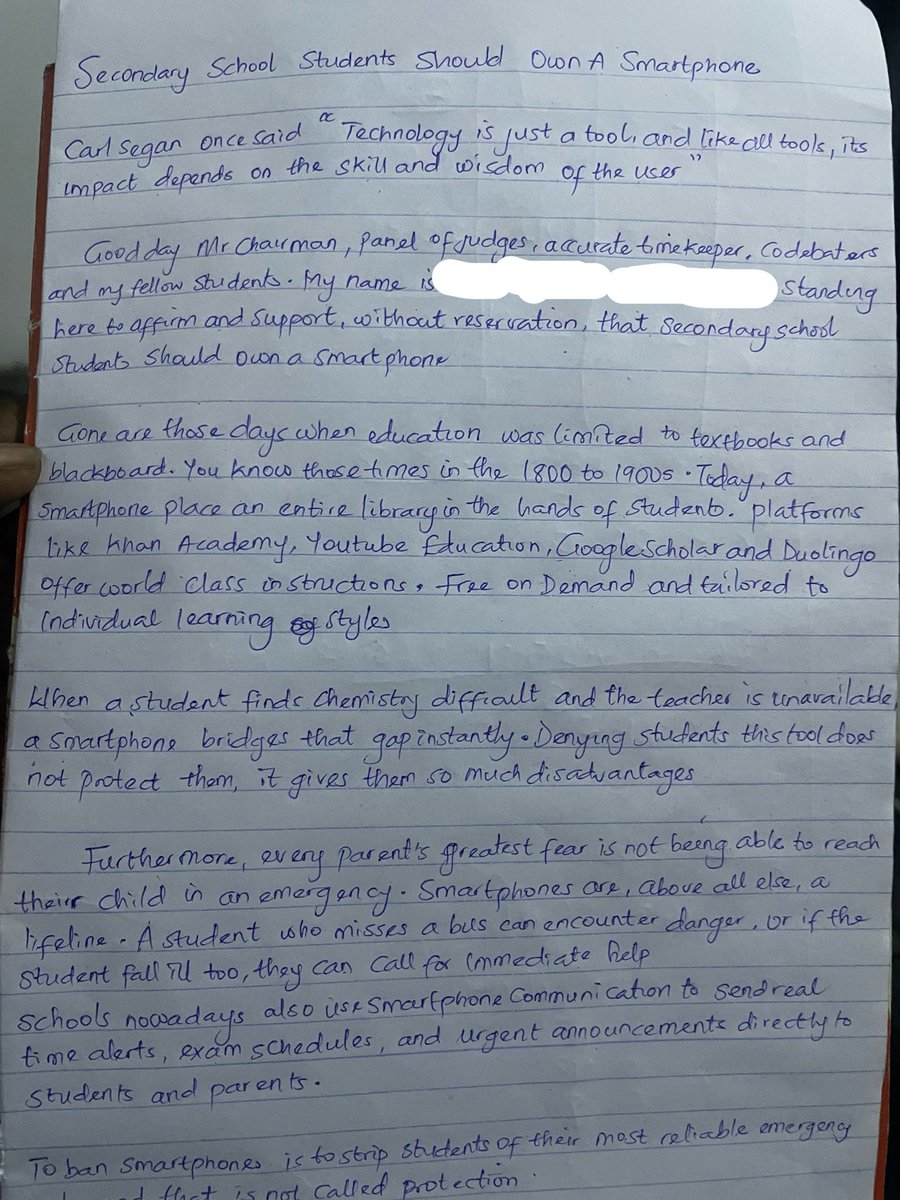 Secondary School Students Should Own A Smartphone
Carl Segan once said "Technology is just a tool, and like all tools, its
impact depends on the skill and wisdom of the user"
Good day Mr Chairman, panel of judges, accurate timekeeper, Codebaters
and my fellow students. My name is Standing
here to affirm and support, without reservation, that secondary school
students should own a smartphone
Gone are those days when education was limited to textbooks and
blackboard. You know those times in the 1800 to 1900s. Today, a
smartphone place an entire library in the hands of students. platforms
like Khan Academy, Youtube Education, Google Scholar and Duolingo
offer world class instructions. Free on Demand and tailored to
individual learning styles
When a student finds chemistry difficult and the teacher is unavailable,
a smartphone bridges that gap instantly. Denying students this tool does
not protect them, it gives them so much disadvantages
Furthermore, every parent's greatest fear is not being able to reach
their child in an emergency. Smartphones are, above all else, a
lifeline. A student who misses a bus can encounter danger, or if the
student fall ill too, they can call for immediate help
schools nowadays also use smartphone communication to send real
time alerts, exam schedules, and urgent announcements directly to
students and parents.
To ban smartphones is to strip students of their most reliable emergeny
that is not called protection.